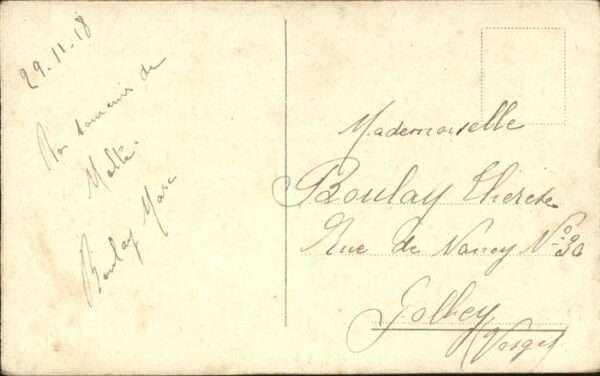 29.11.18
Bon souvenir de
Malte.
Boulay Marc
Mademoiselle
Boulay Therese
Rue de Nancy No 30
Golbey
(Vosges